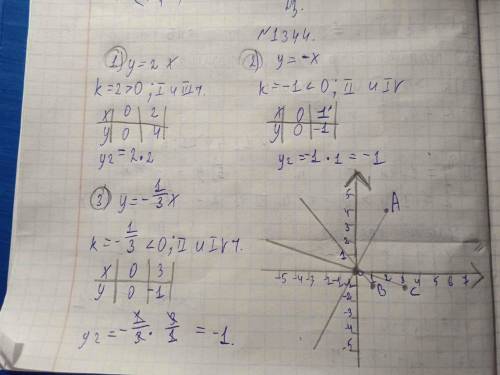 №1344.
1) y=2x
k=2>0; I и III ч.
x | 0 | 2
y | 0 | 4
y2=2·2
2) y=-x
k=-1<0; II и IV
x | 0 | 1
y | 0 | -1
y2=-1·1=-1
3) y=-1/3x
k=-1/3<0; II и IV ч.
x | 0 | 3
y | 0 | -1
y2=-1/3·3/1=-1.
5
4
3
2
1
A
-5 -4 -3 -2 -1 1 2 3 4 5 6 7
B
C
-1
-2
-3
-4
-5